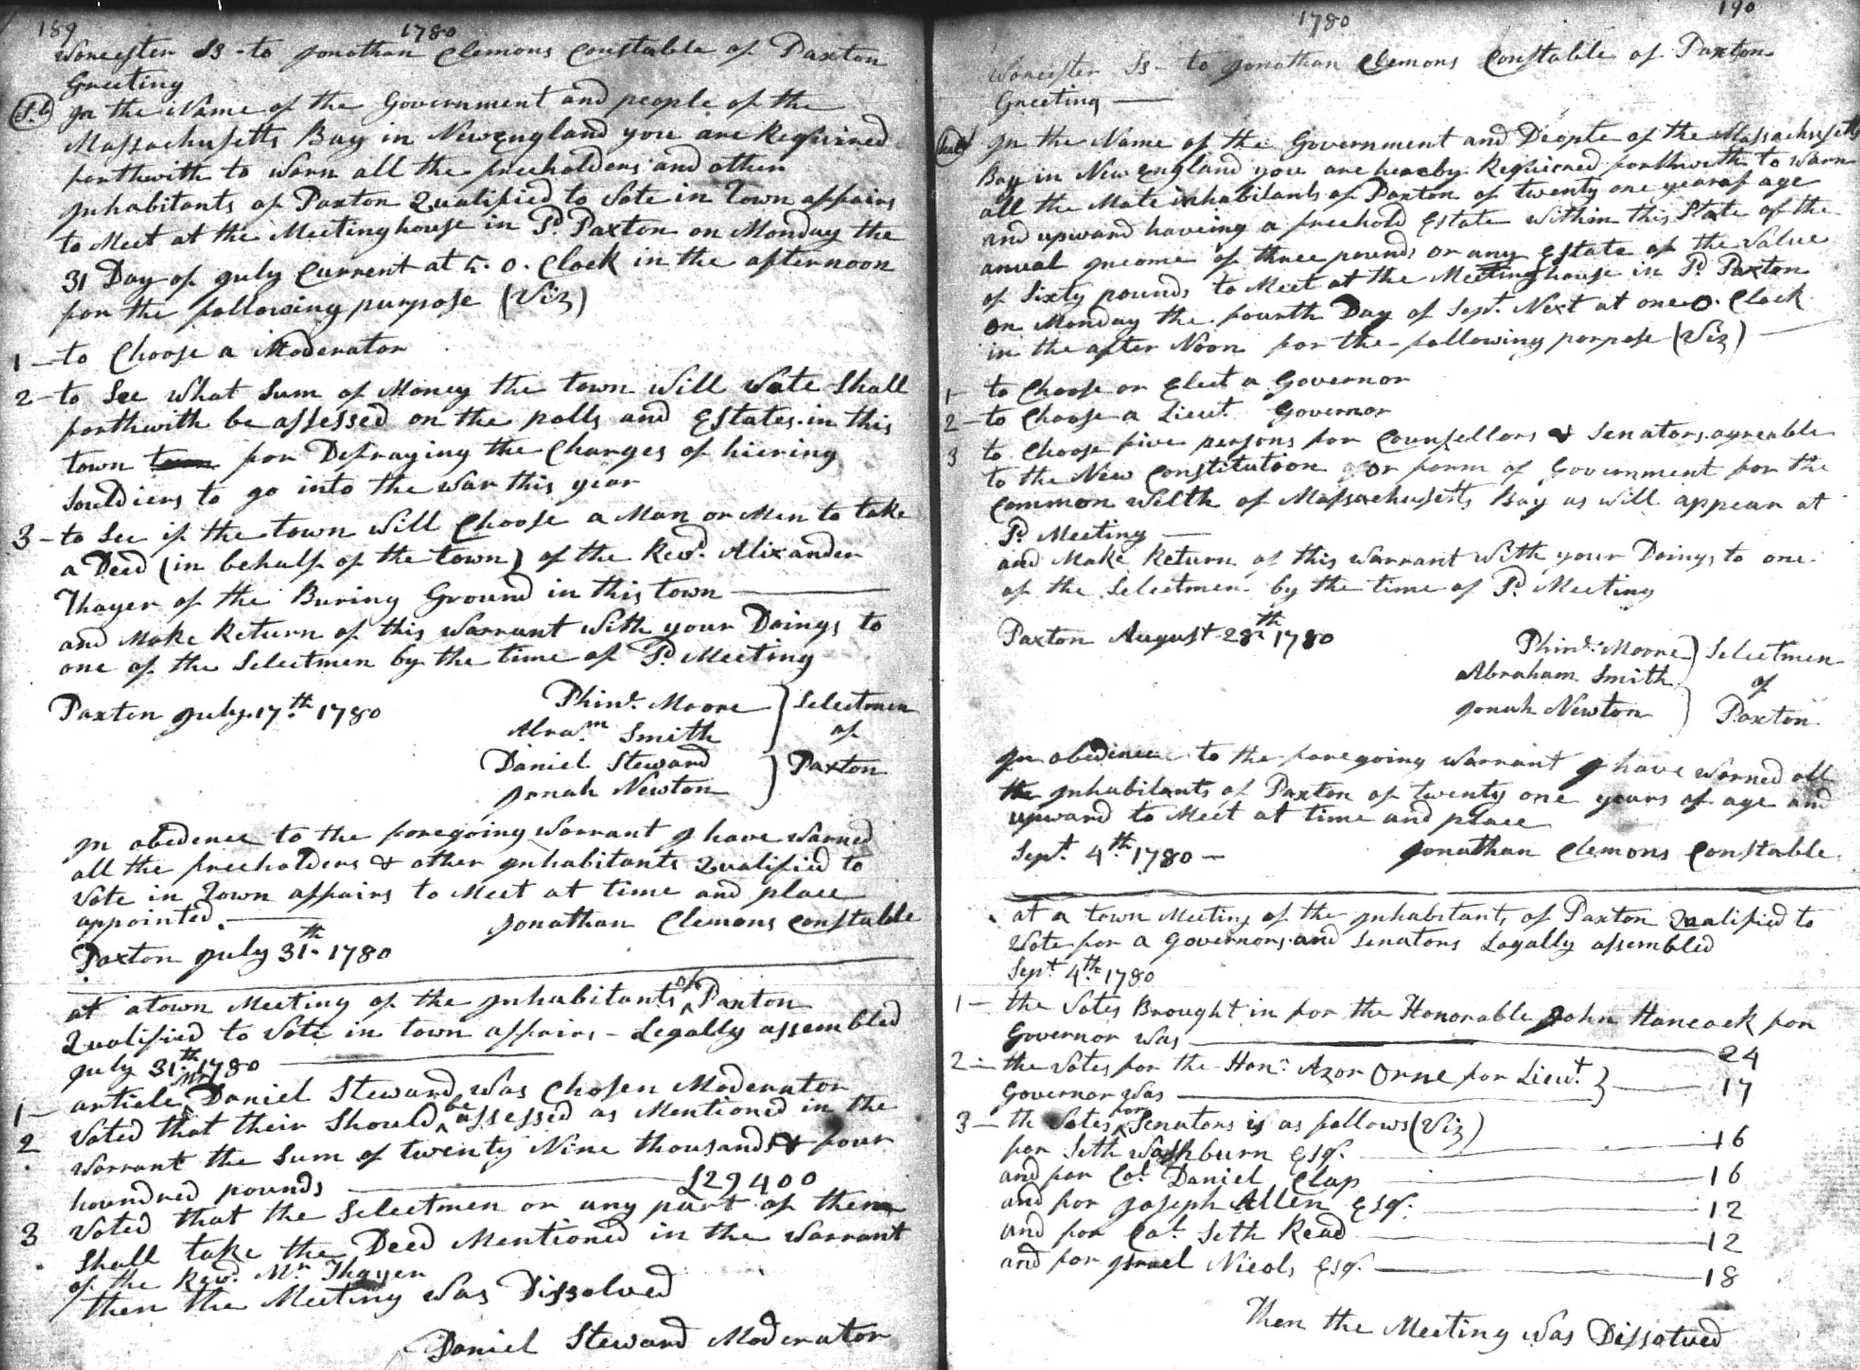 189
1780
Worcester Ss - to Jonathan Clemons Constable of Paxton
Greeting
In the Name of the Government and people of the
Massachusetts Bay in Newengland you are Requiried
forthwith to warn all the freeholders and other
Inhabitants of Paxton Qualified to Vote in Town affairs
to Meet at the Meeting house in Sd Paxton on Monday the
31 Day of July Current at 5. O. Clock in the afternoon
for the following purpose (Viz)
1 - to Choose a Moderator
2 - to See what Sum of Money the town will Vote Shall
forthwith be assessed on the polls and Estates in this
town for Defraying the Charges of hiering
Souldiers to go into the War this year
3 - to See if the town will Choose a Man or Men to take
a Deed (in behalf of the town) of the Revd Alixander
Thayer of the Buring Ground in this town
and Make Return of this warrant with your Doings to
one of the Selectmen by the time of Sd Meeting
Paxton July 17th 1780
Phins Moore
Abram Smith
Daniel Steward
Jonah Newton
Selectmen
of
Paxton
In obedence to the foregoing warrant I have warned
all the freeholders & other Inhabitants Qualified to
Vote in Town affairs to Meet at time and place
appointed.
Jonathan Clemons Constable
Paxton July 31th 1780
at a town Meeting of the Inhabitants of Paxton
Qualified to Vote in town affairs - Legally assembled
July 31th 1780
1 - article Mr Daniel Steward was Chosen Moderator
2 Voted that their Should be assessed as Mentioned in the
warrant the Sum of twenty Nine thousand & four
houndred pounds £29400
3 Voted that the Selectmen or any part of them
Shall take the Deed Mentioned in the warrant
of the Revd Mr Thayer
then the Meeting was Dissolved
Daniel Steward Moderator
1780
190
Worcester Ss - to Jonathan Clemons Constable of Paxton
Greeting
In the Name of the Government and People of the Massachusetts
Bay in New England you are hereby Requiered forthwith to warn
all the Male inhabitants of Paxton of twenty one years of age
and upward haveing a freehold Estate within this State of the
anual Income of three pounds or any Estate of the Value
of Sixty pounds to Meet at the Meeting house in Sd Paxton
on Monday the fourth Day of Sept. Next at one O. Clock
in the after Noon for the following porpose (Viz)
1 - to Choose or Elect a Governor
2 - to Choose a Lieut Governor
3 to Choose five persons for Counsellors & Senators agreable
to the New Constitution or form of Government for the
Common Welth of Massachusetts Bay as will appear at
Sd Meeting
and Make Return of this warrant with your Doings to one
of the Selectmen by the time of Sd Meeting
Paxton August 28th 1780
Phins Moore
Abraham Smith
Jonah Newton
Selectmen
of
Paxton
In obedince to the foregoing warrant I have worned all
the Inhabitants of Paxton of twenty one years of age and
upward to Meet at time and place
Sept. 4th 1780 -
Jonathan Clemons Constable
at a town Meeting of the Inhabitants of Paxton Qualified to
Vote for a Governors and Senators Legally assembled
Sept 4th 1780
1 - the Votes Brought in for the Honorable John Hancock for
Governor was 24
2 - the Votes for the Honr Azor Orne for Lieut
Governor was 17
3 - the Votes for Senators is as follows (Viz)
for Seth Washburn Esqr. 16
and for Col Daniel Clap 16
and for Joseph Allen Esqr. 12
and for Cal Seth Read 12
and for Israel Nicols Esqr. 18
Then the Meeting was Dissolved